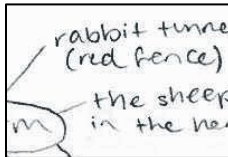 rabbit tunne
(red fence)
the sheep
m
in the